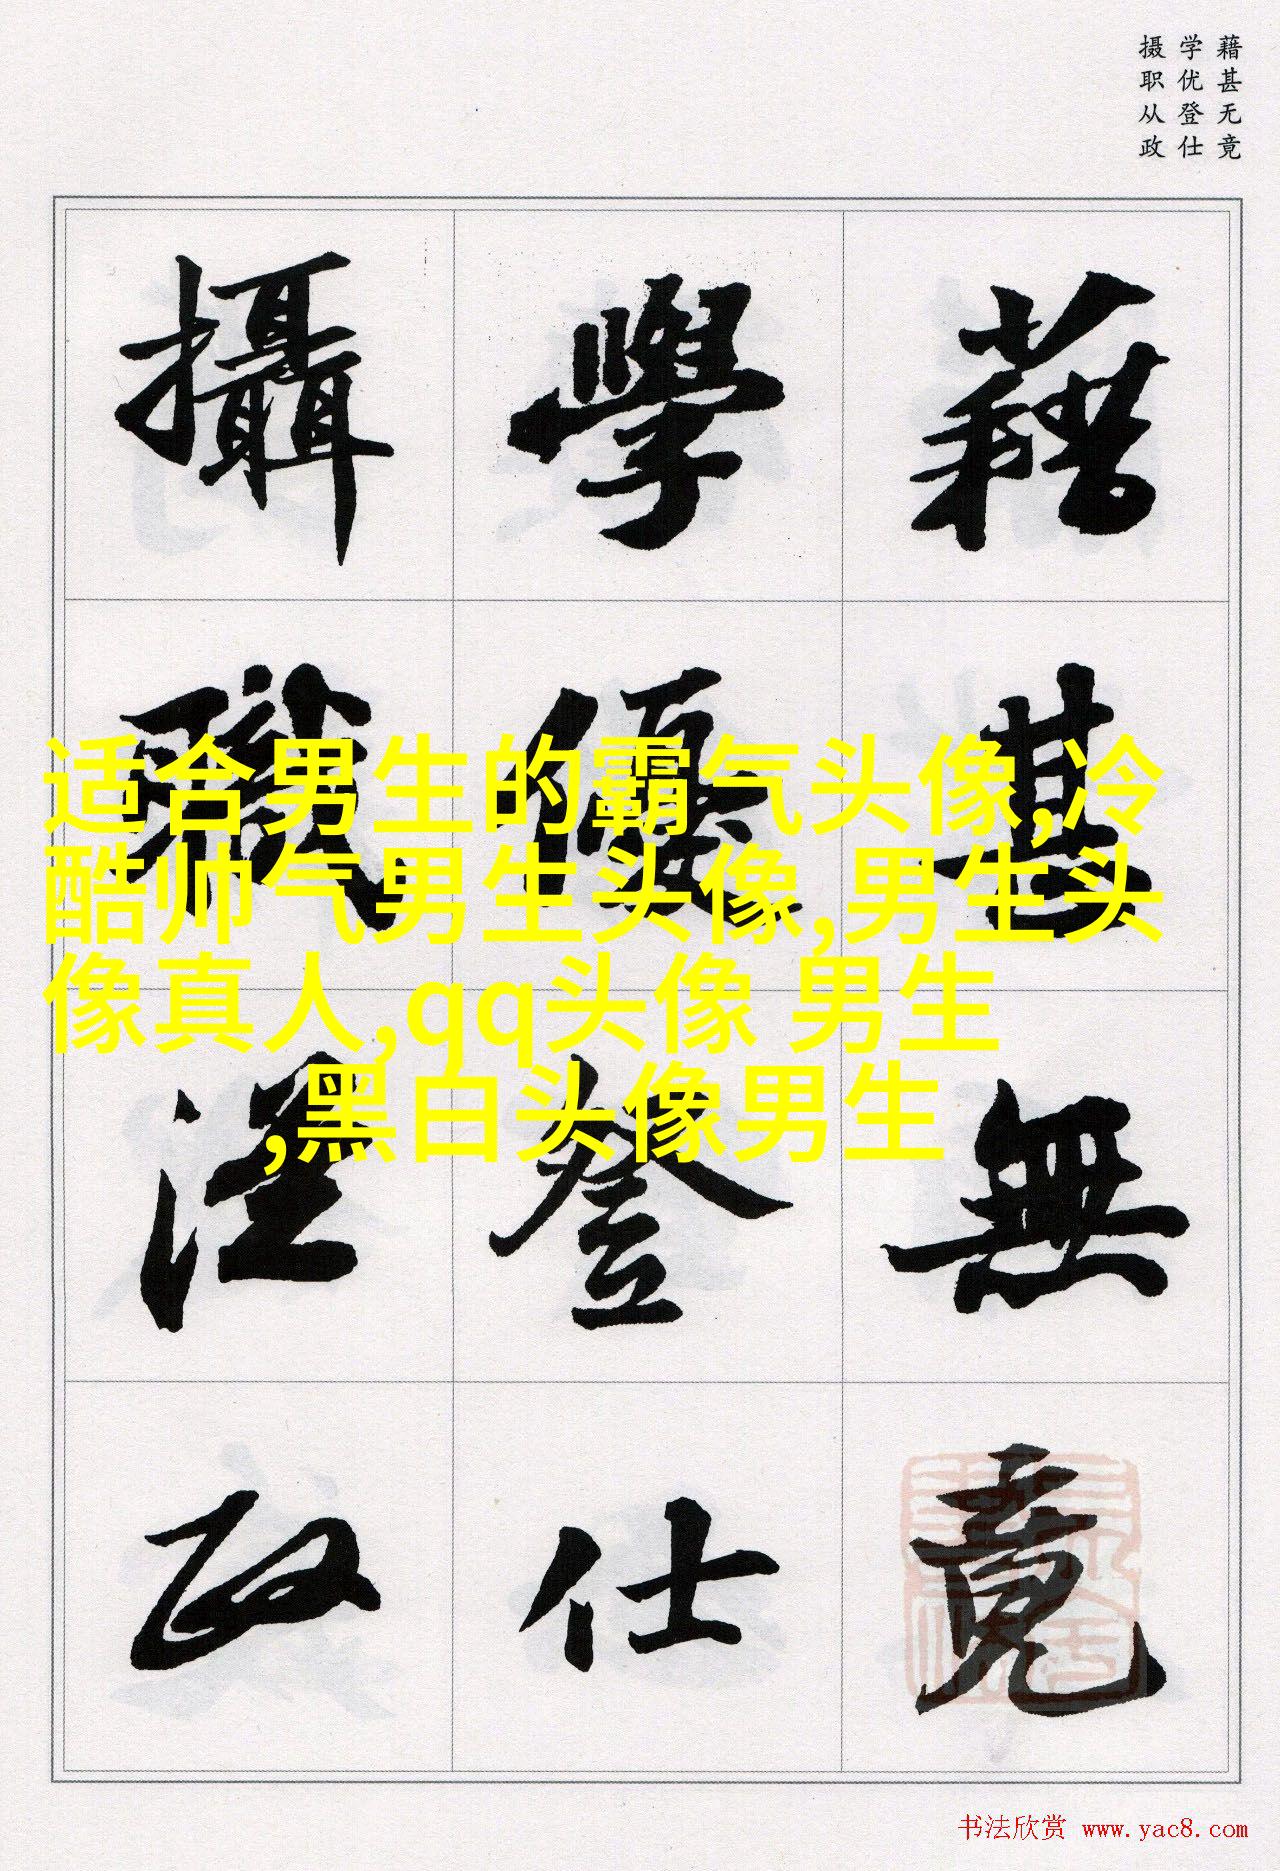 藉甚无竟
学优登仕
摄职从政
藉甚無竟
學優登仕
攝職從政
适合男生的霸气头像,冷
酷帅气男生头像,男生头
像真人,qq头像 男生
,黑白头像男生
书法欣赏 www.yac8.com